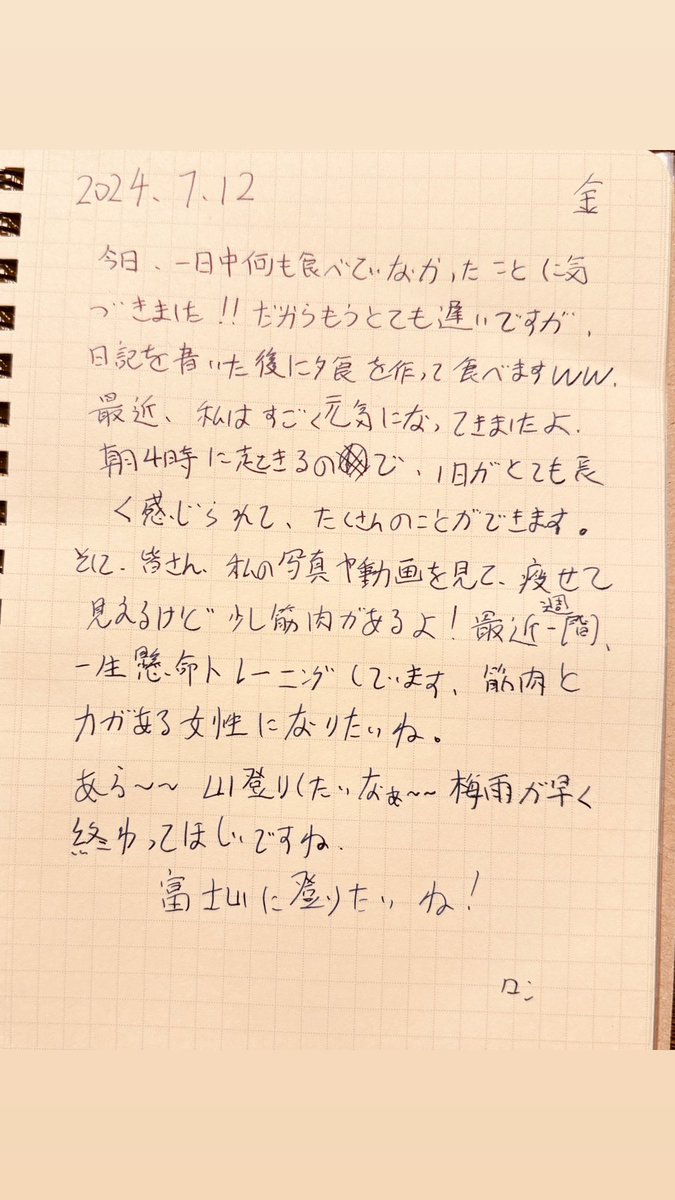 2024.7.12 金
今日、一日中何も食べていなかったことに気
づきました!!だからもうとても遅いですが、
日記を書いた後に夕食を作って食べますww.
最近、私はすごく元気になってきましたよ.
朝4時に起きるので、1日がとても長
く感じられて、たくさんのことができます。
そして、皆さん、私の写真や動画を見て、痩せて
見えるけど少し筋肉があるよ!最近一週間、
一生懸命トレーニングしています、筋肉と
力がある女性になりたいね。
あら〜〜 山登りしたいなぁ〜〜梅雨が早く
終わってほしいですね.
富士山に登りたいね!
ロン